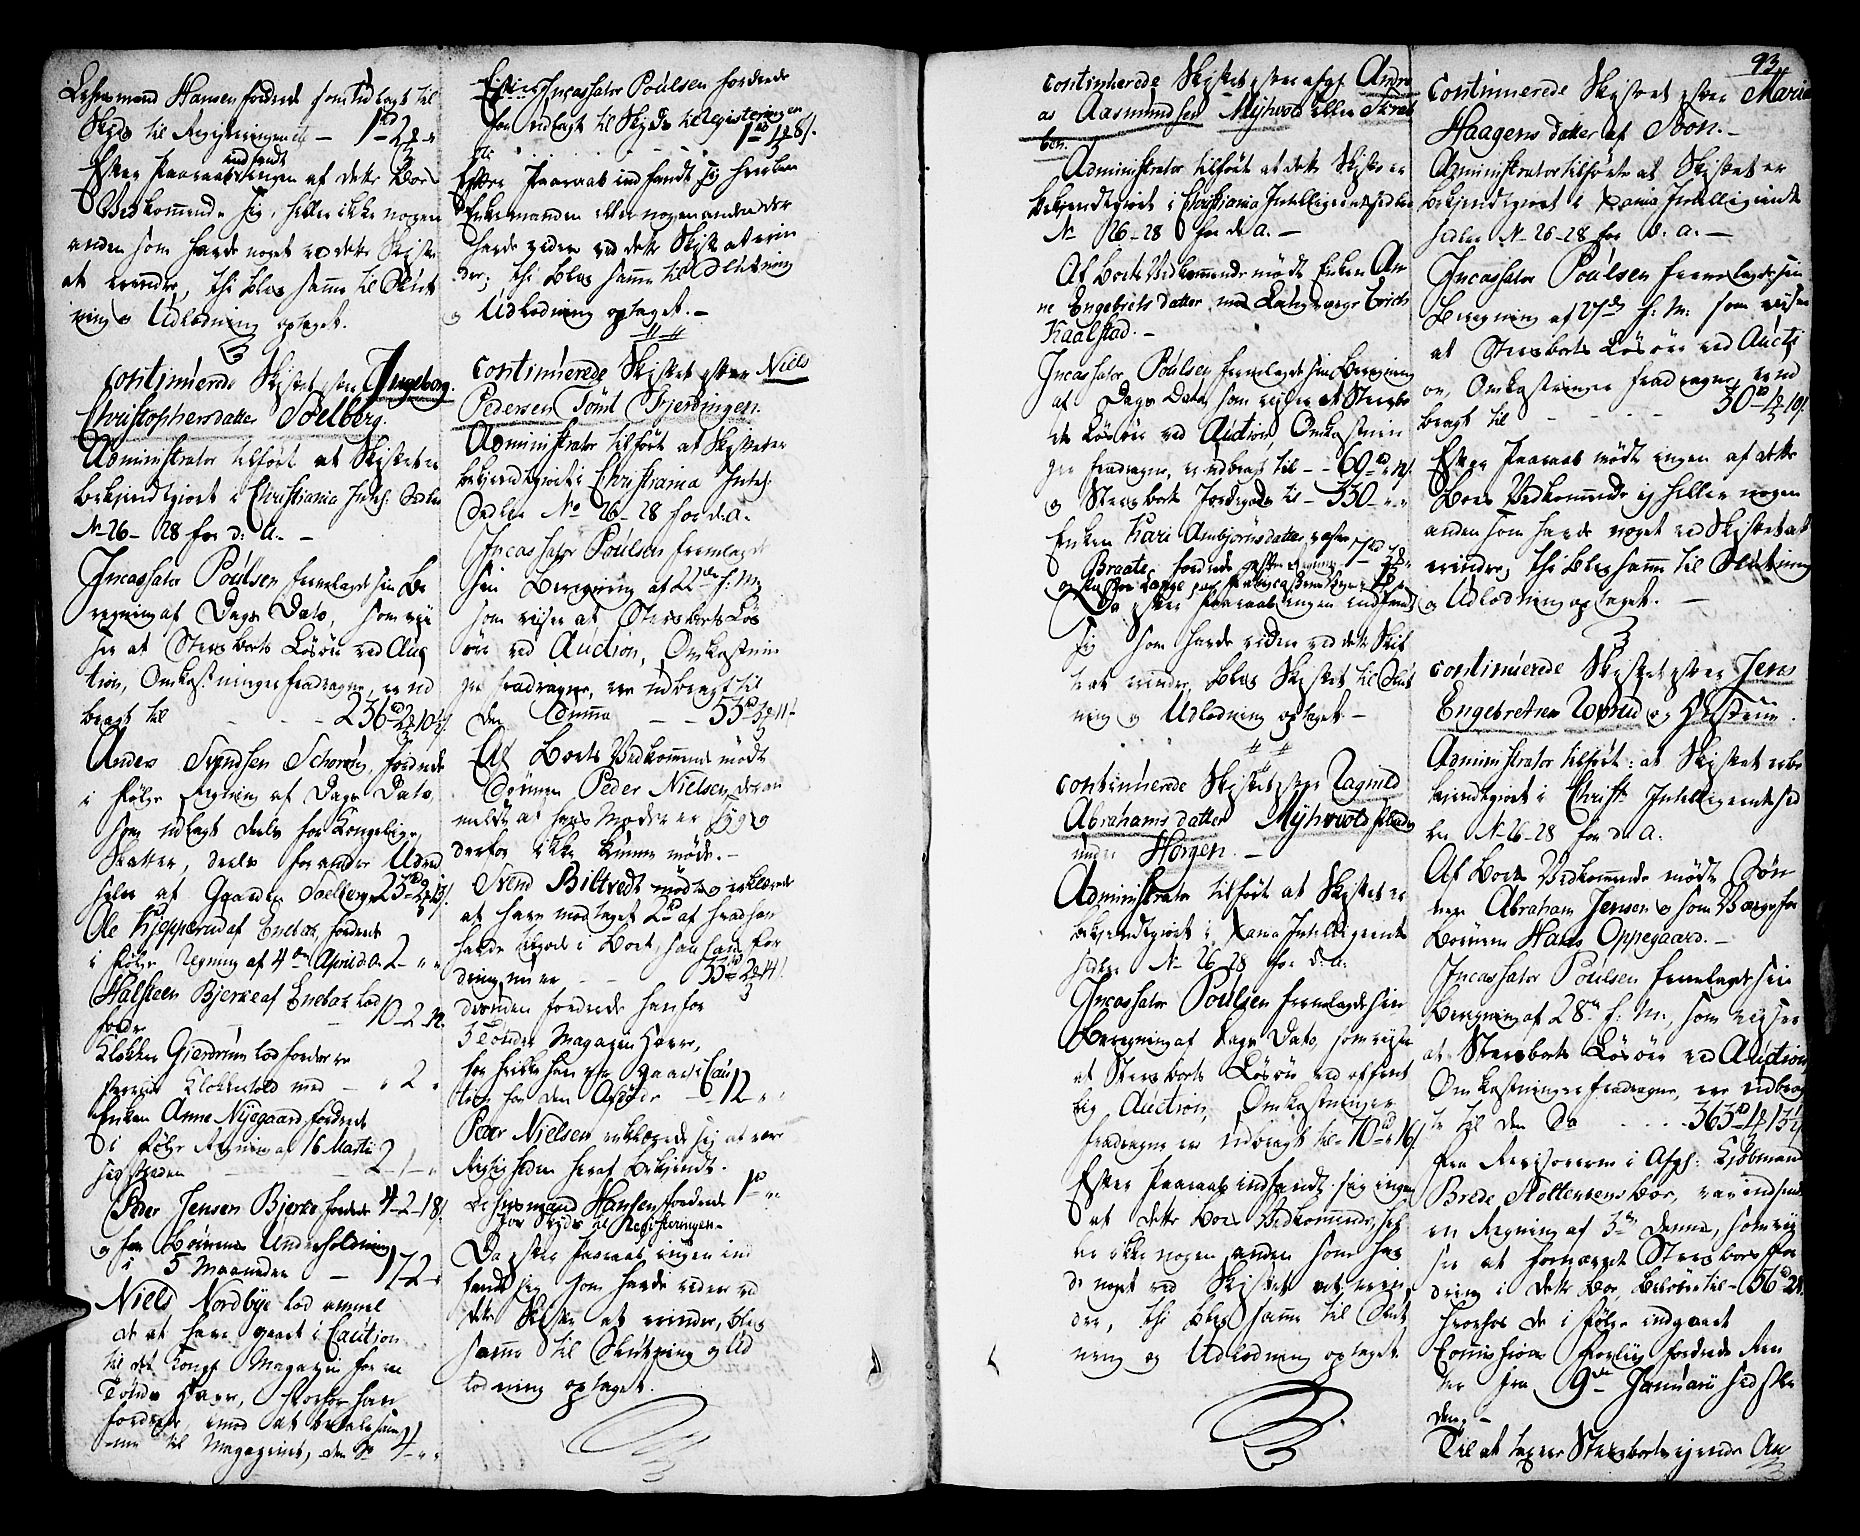 Lehnsmand Hansen fordrede som udlagt til
Skyds til Registeringen - 1 rd 2 -
Efter Paaraab indfandt ingen af dette Boes
Vedkommende sig, heller ikke nogen
anden som havde noget ved dette Skifte
at erindre, thi blev samme til Slut
ning og Udlodning optaget.
continuerede Skiftet efter Ingeborg
Christophersdatter Soelberg.
Administrator tilførte at Skiftet er
bekjendtgiort i Christiania Intel: Sedler
No 26 - 28 for d: A. -
Incassator Poulsen fremlagde sin Be
regning af Dags Dato, som vii
ser at Sterfboets Løsøre ved Auc
tion, Omkostninger fradragne, er ud
bragt til - - - 236 rd 2 10
Anders Svendsen, fordrede
i følge Regning af Dags Dato,
som udlagt deels for Kongelige
Skatter, deels for andre Udred
sler af Gaarden Soelberg 23 rd 2
Ole Kjepperud af Enebak, fordrede
i følge Regning af 4de April d. A. 2 - " "
Halsteen Bjerke af Enebak lod
fordre - - 10 - 2 - 12.
Klokker Gjerdrum lod fordre re
sterende Klokketold med - " 2 "
Enken Anne Nyegaard fordrede
i følge Regning af 16 Martii
sidstleden - - 2 - 1 - "
Peder Jensen Bjerke fordrede 4 - 2 - 18.
og for Børnenes Underholdning
i 5 Maaneder - 17 - 2 - "
Niels Nordbye lod anmel
de at have gaaet i Caution
til det Kongl Magazin for en
Tønde Havre, hvorfor han
fordrede, imod at betale sam
me til Magazinet, den So 4 - " "
Incassator Poulsen fordrede
for udlagt til Skyds til Registeringen
1 rd 1 8.
Efter Paaraab indfandt sig hverken
Enkemanden eller nogen anden der
havde viidere ved dette Skifte at erin
dre, thi blev samme til Slutning
og Udlodning optaget. -
continuerede Skiftet efter Niels
Pedersen Tomt Fjerdingen.
Administrator tilførte at Skiftet er
bekjendtgiort i Christiania Intel:
Sedler No 26 - 28 for d. A.
Incassator Poulsen fremlagde
sin Beregning af 22de f. M.
som viiser at Sterfboets Løs
øre ved Auction, Omkostnin
ger fradragne, ere udbragt til
den Summa - - 53 rd 3 11
Af Boets Vedkommende mødte
Sønnen Peder Nielsen, der an
meldte at hans Moder er syg og
derfor ikke kunne møde. -
Svend Biltvedt mødte og erklærede
at have modtaget 2 rd af hvad han
havde tilgode i Boet, saa hans for
dring nu er - - 33 rd 2 14
desuden fordrede han for
3 Tønder Magazin Havre,
for hvilke han har gaaet i Cau
tion for den Afdøde - 12 " "
Peder Nielsen erklærede sig at være
Rigtigheden heraf bekjendt.
Lehnsmand Hansen fordrede 1 rd " "
for Skyds til Registeringen -
Da efter Paaraab ingen ind
fandt sig som havde videre ved
dette Skifte at erindre, blev
samme til Slutning og Ud
lodning optaget.
continuerede Skiftet efter afgl. Andre
as Aasmundsen Myhrvold eller Skrab
ben.
Administrator tilførte at dette Skifte er
bekjendtgiort i Christiania Intelligentsedler
No 26 - 28 for d. A. -
Af Boets Vedkommende mødte Enken An
ne Engebretsdatter med Laugværge Erich
Kaalstad. -
Incassator Poulsen fremlagde sin Beregning
af Dags Dato som viiser at Sterfbo
ets Løsøre ved Auction, Omkostnin
ger fradragne, er udbragt til - - 69 rd
og Sterfboets Jordegods til - 330 - " "
Enken Kari Ambjørnsdatter
Braate, fordrede efter Regning - 7 rd
Da efter Paaraab ingen indfandt
sig som havde viidere ved dette Skif
te at erindre, blev Skiftet til Slut
ning og Udlodning optaget -
continuerede Skiftet efter Ragnild
Abrahamsdatter Myhrvold
under Horgen. -
Administrator tilførte at Skiftet er
bekjendtgiort i Xania Intelligents
sedler No 26 - 28 for d. A.
Incassator Poulsen fremlagde sin
Beregning af Dags Dato, som viiser
at Sterfboets Løsøre ved offent
lig Auction, Omkostninger
fradragne er udbragt til 70 rd 16
Efter Paaraab indfandt sig ingen
af dette Boes Vedkommende, hel
ler ikke nogen anden som hav
de noget ved Skiftet at erin
dre, thi blev samme til Slut
ning og Udlodning optaget.
93.
continuerede Skiftet efter Marie
Haagensdatter af Soon. -
Administrator tilførte at Skiftet er
bekjendtgiort i Xania Intelligents
sedler No 26 - 28 for d. A. -
Incassator Poulsen fremlagde sin
Beregning af 27de f. M. som viiser
at Sterfboets Løsøre ved Aucti
on, Omkostninger fradragne, er ud
bragt til - - - 30 rd 1 19.
Efter Paaraab mødte ingen af dette
Boes Vedkommende ej heller nogen
anden som havde noget ved Skiftet at
erindre, thi blev samme til Slutning
og Udlodning optaget. -
continuerede Skiftet efter Jens
Engebretsen og Hustrue.
Administrator tilførte: at Skiftet er be
kjendtgiort i Christ: Intelligentsed
ler No 26 - 28 for d. A.
Af Boets Vedkommende mødte Søn
nen Abraham Jensen og som Værge for
Børnene Hans Oppegaard. -
Incassator Poulsen fremlagde sin
Beregning af 28de f. M., som viiser
at Sterfboets Løsøre ved Auction
Omkostninger fradragne, ere udbrag
te til den So - - - 363 rd 1 13
fra Revisoren i Afgl: Kjøbmand
Brede Stoltenbergs Boe, var indsendt
en Regning af 3de denne, som vii
ser at fornævnte Sterfboes for
dring i dette Boe, beløber til - 56 rd 2
hvorhos de i følge indgaaet
Commissions Forliig fordrede Ren
ter fra 9de Januarii sidstle
den. -
Til at taxere Sterfboets ejende